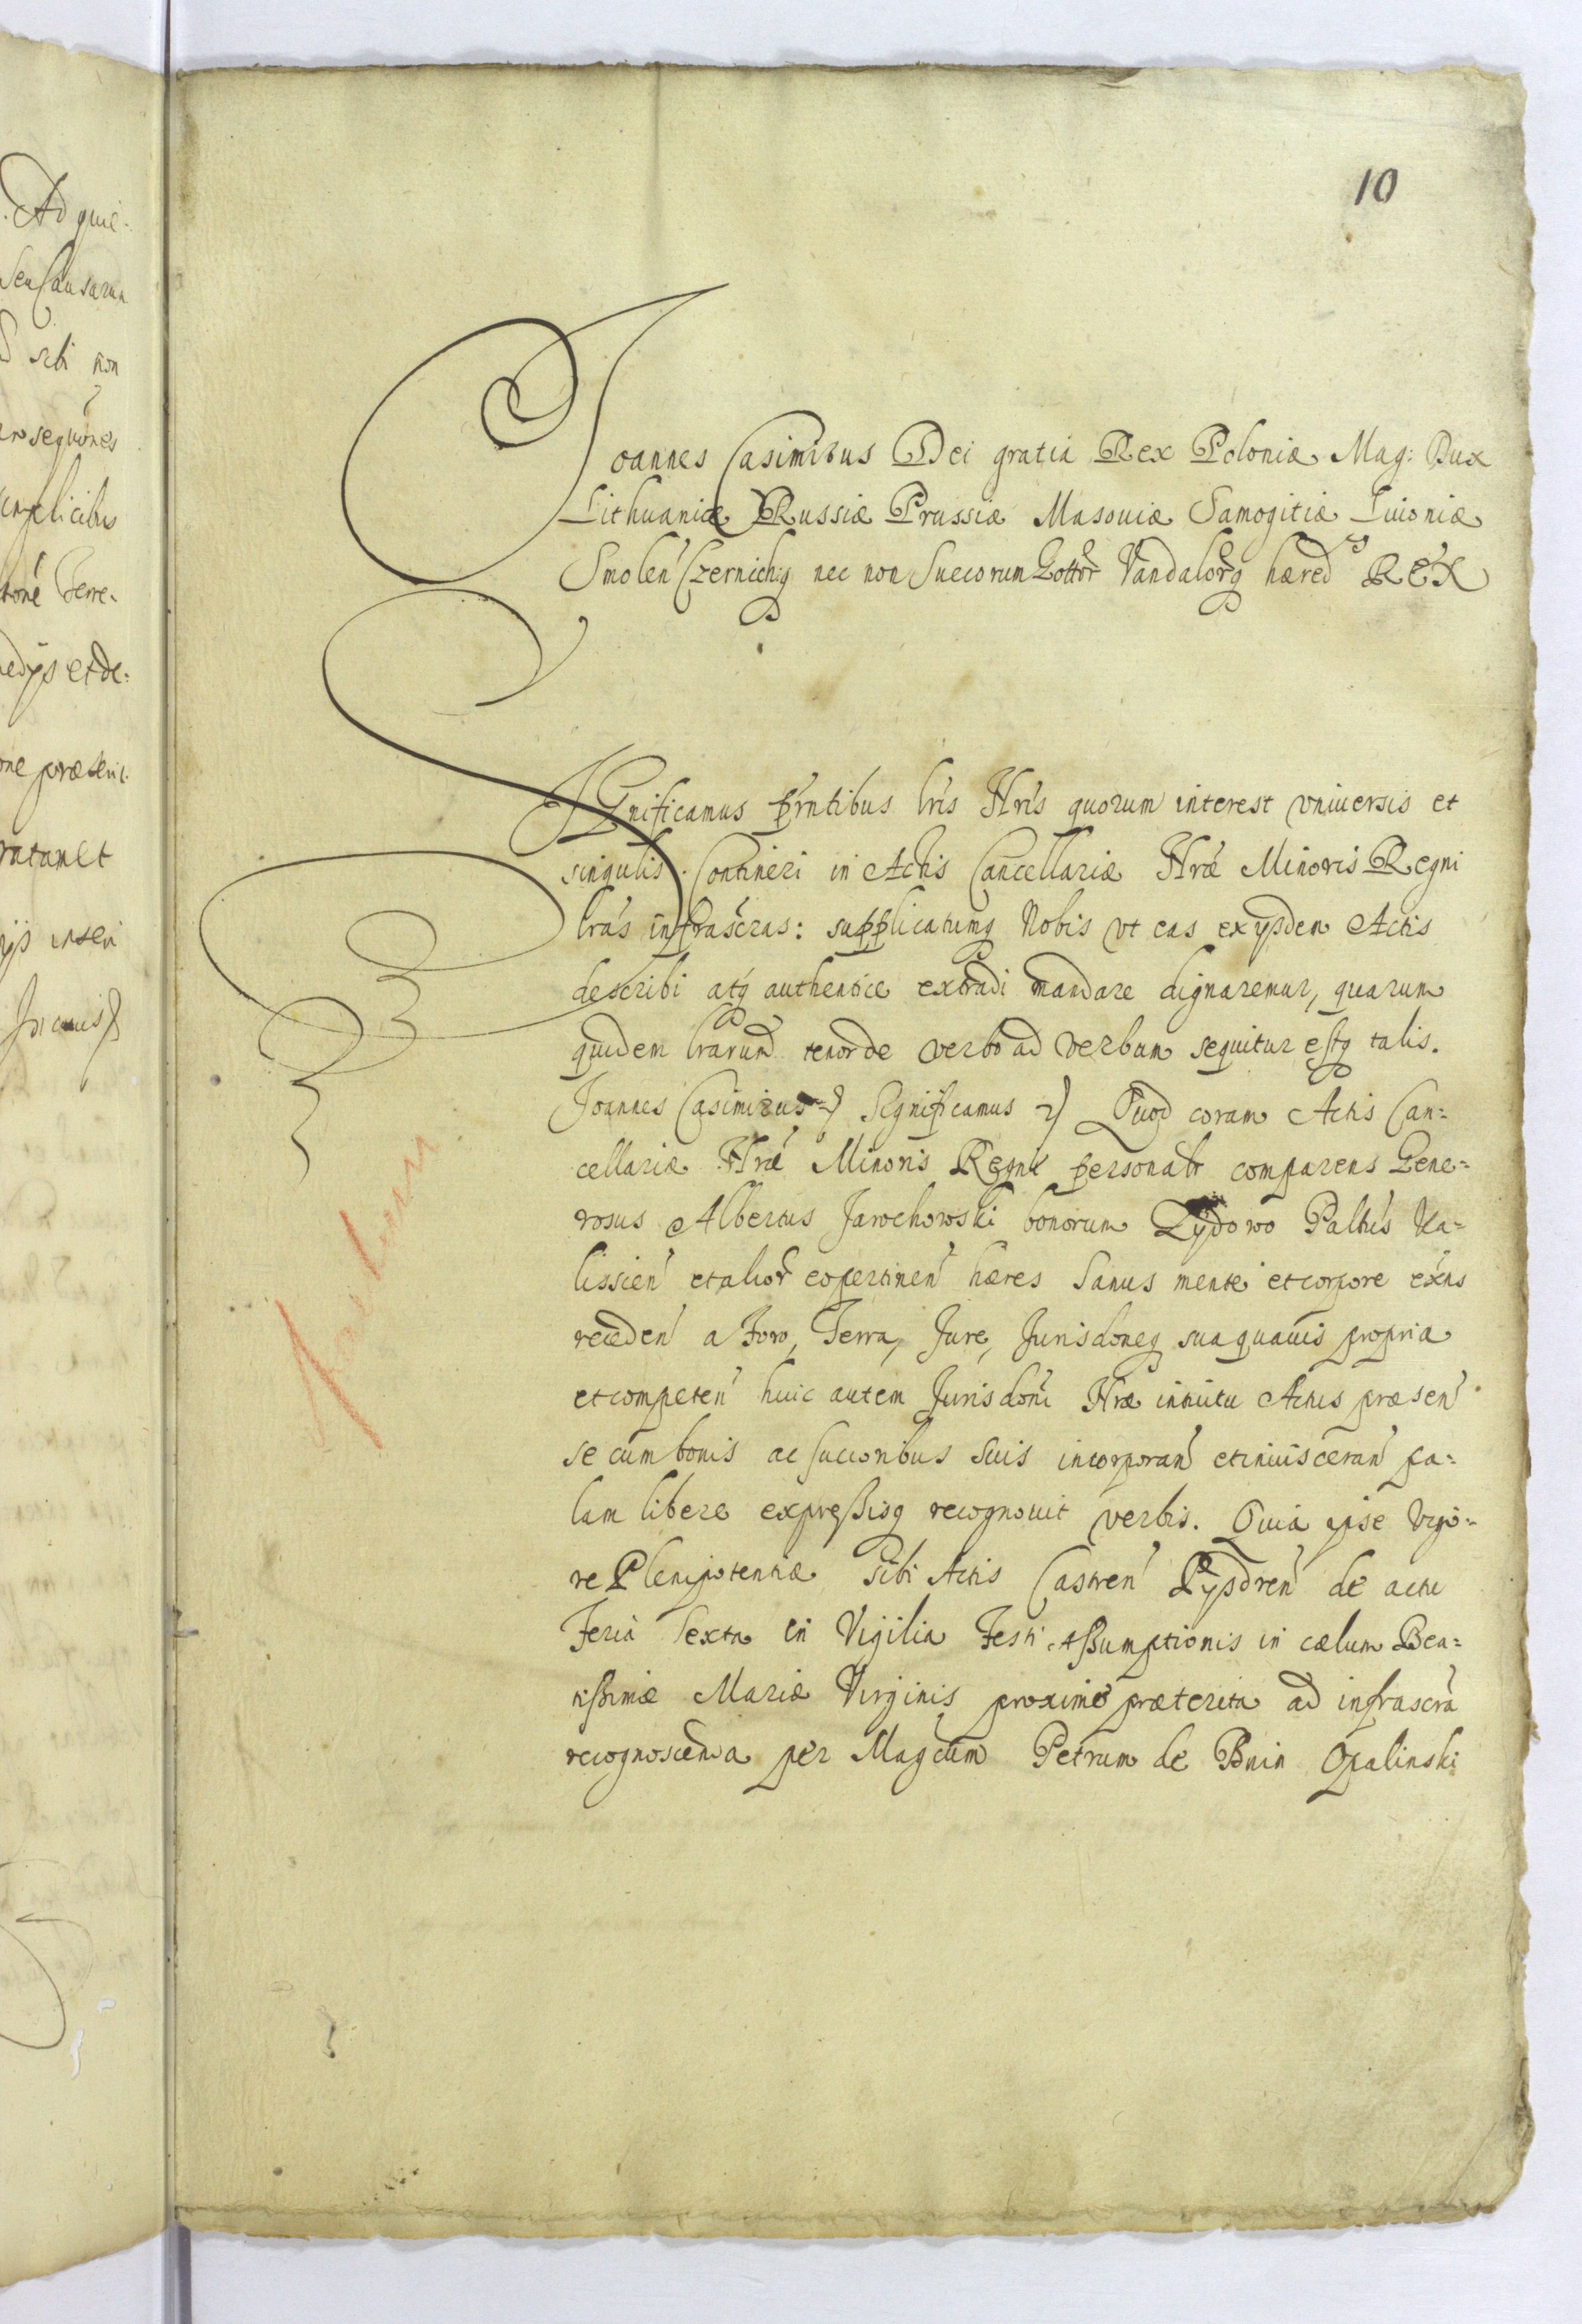 10
Joannes Casimirus Dei gratia Rex Poloniæ Mag: Dux
Lithuaniæ Russiæ Prussiæ Masouiæ Samogitiæ Liuoniæ
Smolen Czernichq nec non Suecorum Gottor Vandalorq hæred REX
SIGnificamus prntibus lris Nris quorum interest vniuersis et
singulis. Contineri in Actis Cancellariæ Nræ Minoris Regni
lras infrascras: supplicatumq Nobis vt eas exijsdem Actis
describi atq authentice extradi mandare dignaremur, quarum
quidem lrarum tenor de verbo ad verbum sequitur estq talis.
Joannes Casimirus Significamus Quod coram Actis Can=
cellariæ Nræ Minoris Regni personalr comparens Gene=
rosus Albertus Jarochowski bonorum Zydowo Palttis Ka=
lissien et alior eopertinen hæres Sanus mente et corpore exns
receden a Foro, Terra, Jure, Jurisdoneq sua quauis propria
et competen huic autem Jurisdoni Nræ intuitu Actus præsen
se cum bonis ac succoribus suis incorporan et inuisceran pa=
lam libere expressisq recognouit verbis. Quia ipse Vigo=
re Plenipotentiæ sibi Actis Castren Pysdren de actu
Feria Sexta in Vigilia Festi Assumptionis in cælum Bea=
tissimæ Mariæ Virginis proxime præterita ad infrascra
recognoscenda per Magcum Petrum de Bnin Opalinski
Ad quie
seu Causarum
sibi non
et de:
inseri